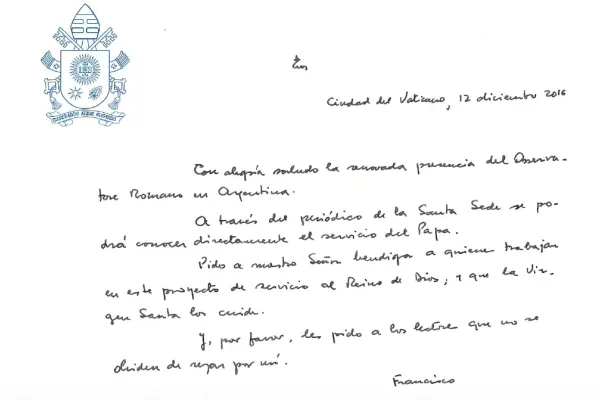 MISERANDO ATQUE ELIGENDO
IHS
Ciudad del Vaticano, 12 diciembre 2016
Con alegría saludo la renovada presencia del Osserva-
tore Romano en Argentina.
A través del periódico de la Santa Sede se po-
drá conocer directamente el servicio del Papa.
Pido a nuestro Señor bendiga a quienes trabajan
en este proyecto de servicio al Reino de Dios; y que la Vir-
gen Santa los cuide.
Y, por favor, les pido a los lectores que no se
olviden de rezar por mí.
Francisco